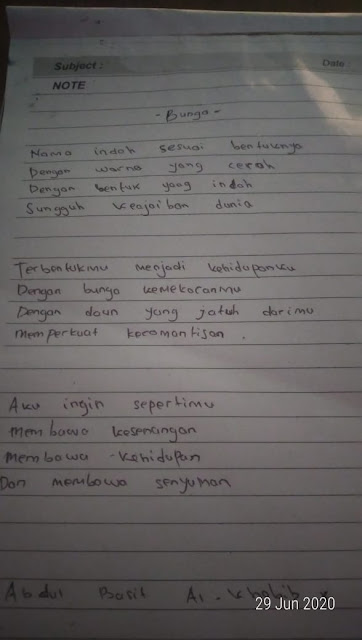 Subject :
Date :
NOTE
- Bunga -
Nama indah sesuai bentuknya
Dengan warna yang cerah
Dengan bentuk yang indah
Sungguh keajaiban dunia
Terbentukmu menjadi kehidupanku
Dengan bunga kemekaranmu
Dengan daun yang jatuh darimu
Memperkuat keromantisan .
Aku ingin sepertimu
Membawa kesenangan
Membawa - kehidupan
Dan membawa senyuman
Abdul Basit Al - Khabib
29 Jun 2020